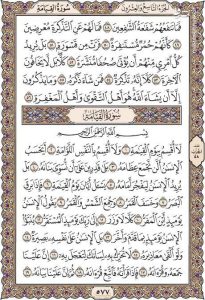 سُورَةُ القِيَامَةِ الجُزْءُ التَّاسِعُ وَالعِشْرُونَ
فَمَا تَنفَعُهُمْ شَفَٰعَةُ ٱلشَّٰفِعِينَ ٤٨ فَمَا لَهُمْ عَنِ ٱلتَّذْكِرَةِ مُعْرِضِينَ ٤٩
كَأَنَّهُمْ حُمُرٌ مُّسْتَنفِرَةٌ ٥٠ فَرَّتْ مِن قَسْوَرَةٍۭ ٥١ بَلْ يُرِيدُ
كُلُّ ٱمْرِئٍ مِّنْهُمْ أَن يُؤْتَىٰ صُحُفًا مُّنَشَّرَةً ٥٢ كَلَّا ۖ بَل لَّا يَخَافُونَ
ٱلْءَاخِرَةَ ٥٣ كَلَّآ إِنَّهُۥ تَذْكِرَةٌ ٥٤ فَمَن شَآءَ ذَكَرَهُۥ ٥٥ وَمَا يَذْكُرُونَ
إِلَّآ أَن يَشَآءَ ٱللَّهُ ۚ هُوَ أَهْلُ ٱلتَّقْوَىٰ وَأَهْلُ ٱلْمَغْفِرَةِ ٥٦
سُورَةُ القِيَامَةِ
بِسْمِ ٱللَّهِ ٱلرَّحْمَٰنِ ٱلرَّحِيمِ
لَآ أُقْسِمُ بِيَوْمِ ٱلْقِيَٰمَةِ ١ وَلَآ أُقْسِمُ بِٱلنَّفْسِ ٱللَّوَّامَةِ ٢ أَيَحْسَبُ
ٱلْإِنسَٰنُ أَلَّن نَّجْمَعَ عِظَامَهُۥ ٣ بَلَىٰ قَٰدِرِينَ عَلَىٰٓ أَن نُّسَوِّيَ بَنَانَهُۥ ٤ بَلْ يُرِيدُ
ٱلْإِنسَٰنُ لِيَفْجُرَ أَمَامَهُۥ ٥ يَسْـَٔلُ أَيَّانَ يَوْمُ ٱلْقِيَٰمَةِ ٦ فَإِذَا بَرِقَ ٱلْبَصَرُ ٧
وَخَسَفَ ٱلْقَمَرُ ٨ وَجُمِعَ ٱلشَّمْسُ وَٱلْقَمَرُ ٩ يَقُولُ ٱلْإِنسَٰنُ
يَوْمَئِذٍ أَيْنَ ٱلْمَفَرُّ ١٠ كَلَّا لَا وَزَرَ ١١ إِلَىٰ رَبِّكَ يَوْمَئِذٍ ٱلْمُسْتَقَرُّ ١٢ يُنَبَّؤُا۟
ٱلْإِنسَٰنُ يَوْمَئِذٍۭ بِمَا قَدَّمَ وَأَخَّرَ ١٣ بَلِ ٱلْإِنسَٰنُ عَلَىٰ نَفْسِهِۦ بَصِيرَةٌ ١٤
وَلَوْ أَلْقَىٰ مَعَاذِيرَهُۥ ١٥ لَا تُحَرِّكْ بِهِۦ لِسَانَكَ لِتَعْجَلَ بِهِۦٓ ١٦ إِنَّ عَلَيْنَا
جَمْعَهُۥ وَقُرْءَانَهُۥ ١٧ فَإِذَا قَرَأْنَٰهُ فَٱتَّبِعْ قُرْءَانَهُۥ ١٨ ثُمَّ إِنَّ عَلَيْنَا بَيَانَهُۥ ١٩
٥٧٧